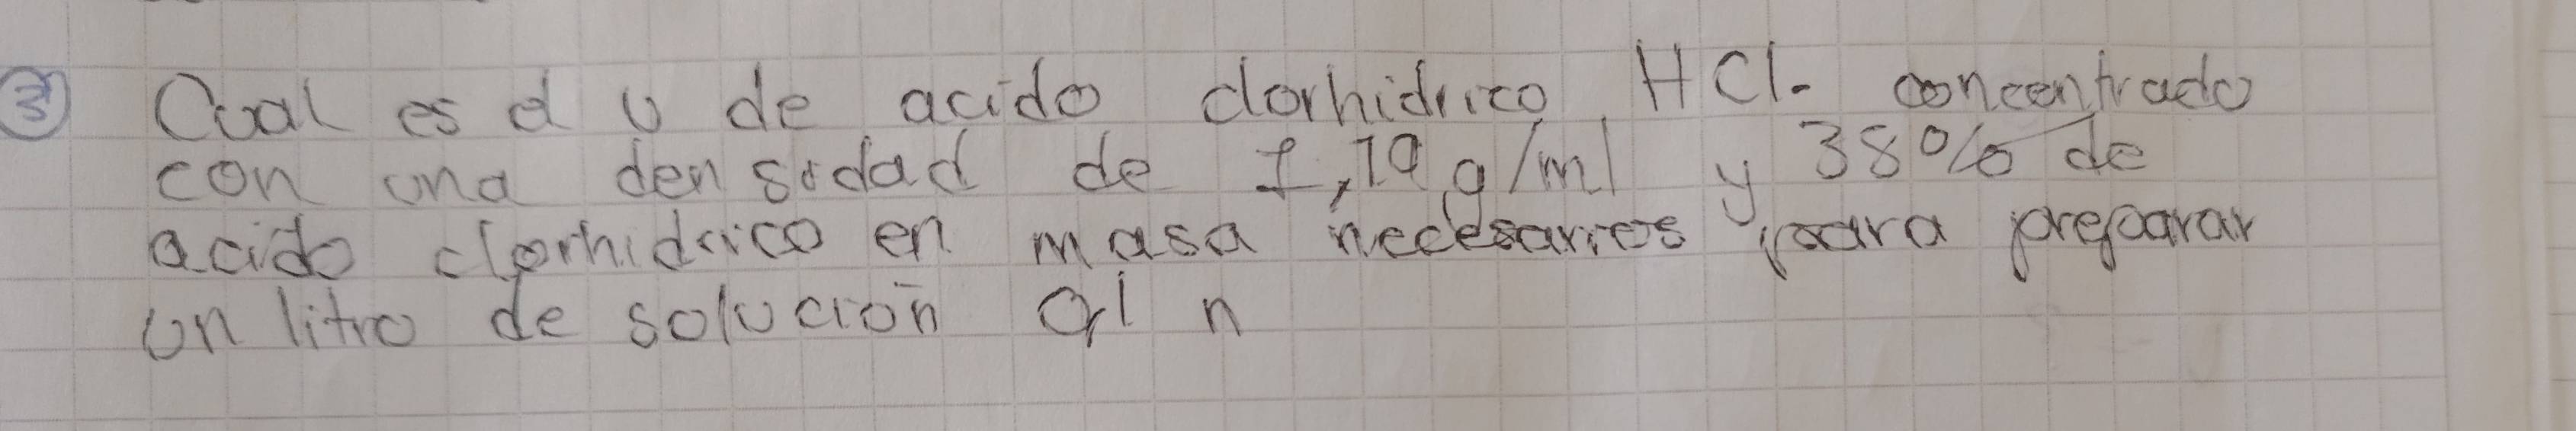 3 Cual es el v de acido clorhidrico HCl. concentrado
con una densidad de 1,19 g/ml y 38% de
acido clorhidrico en masa necesarios para preparar
un litro de solución 0,1 n